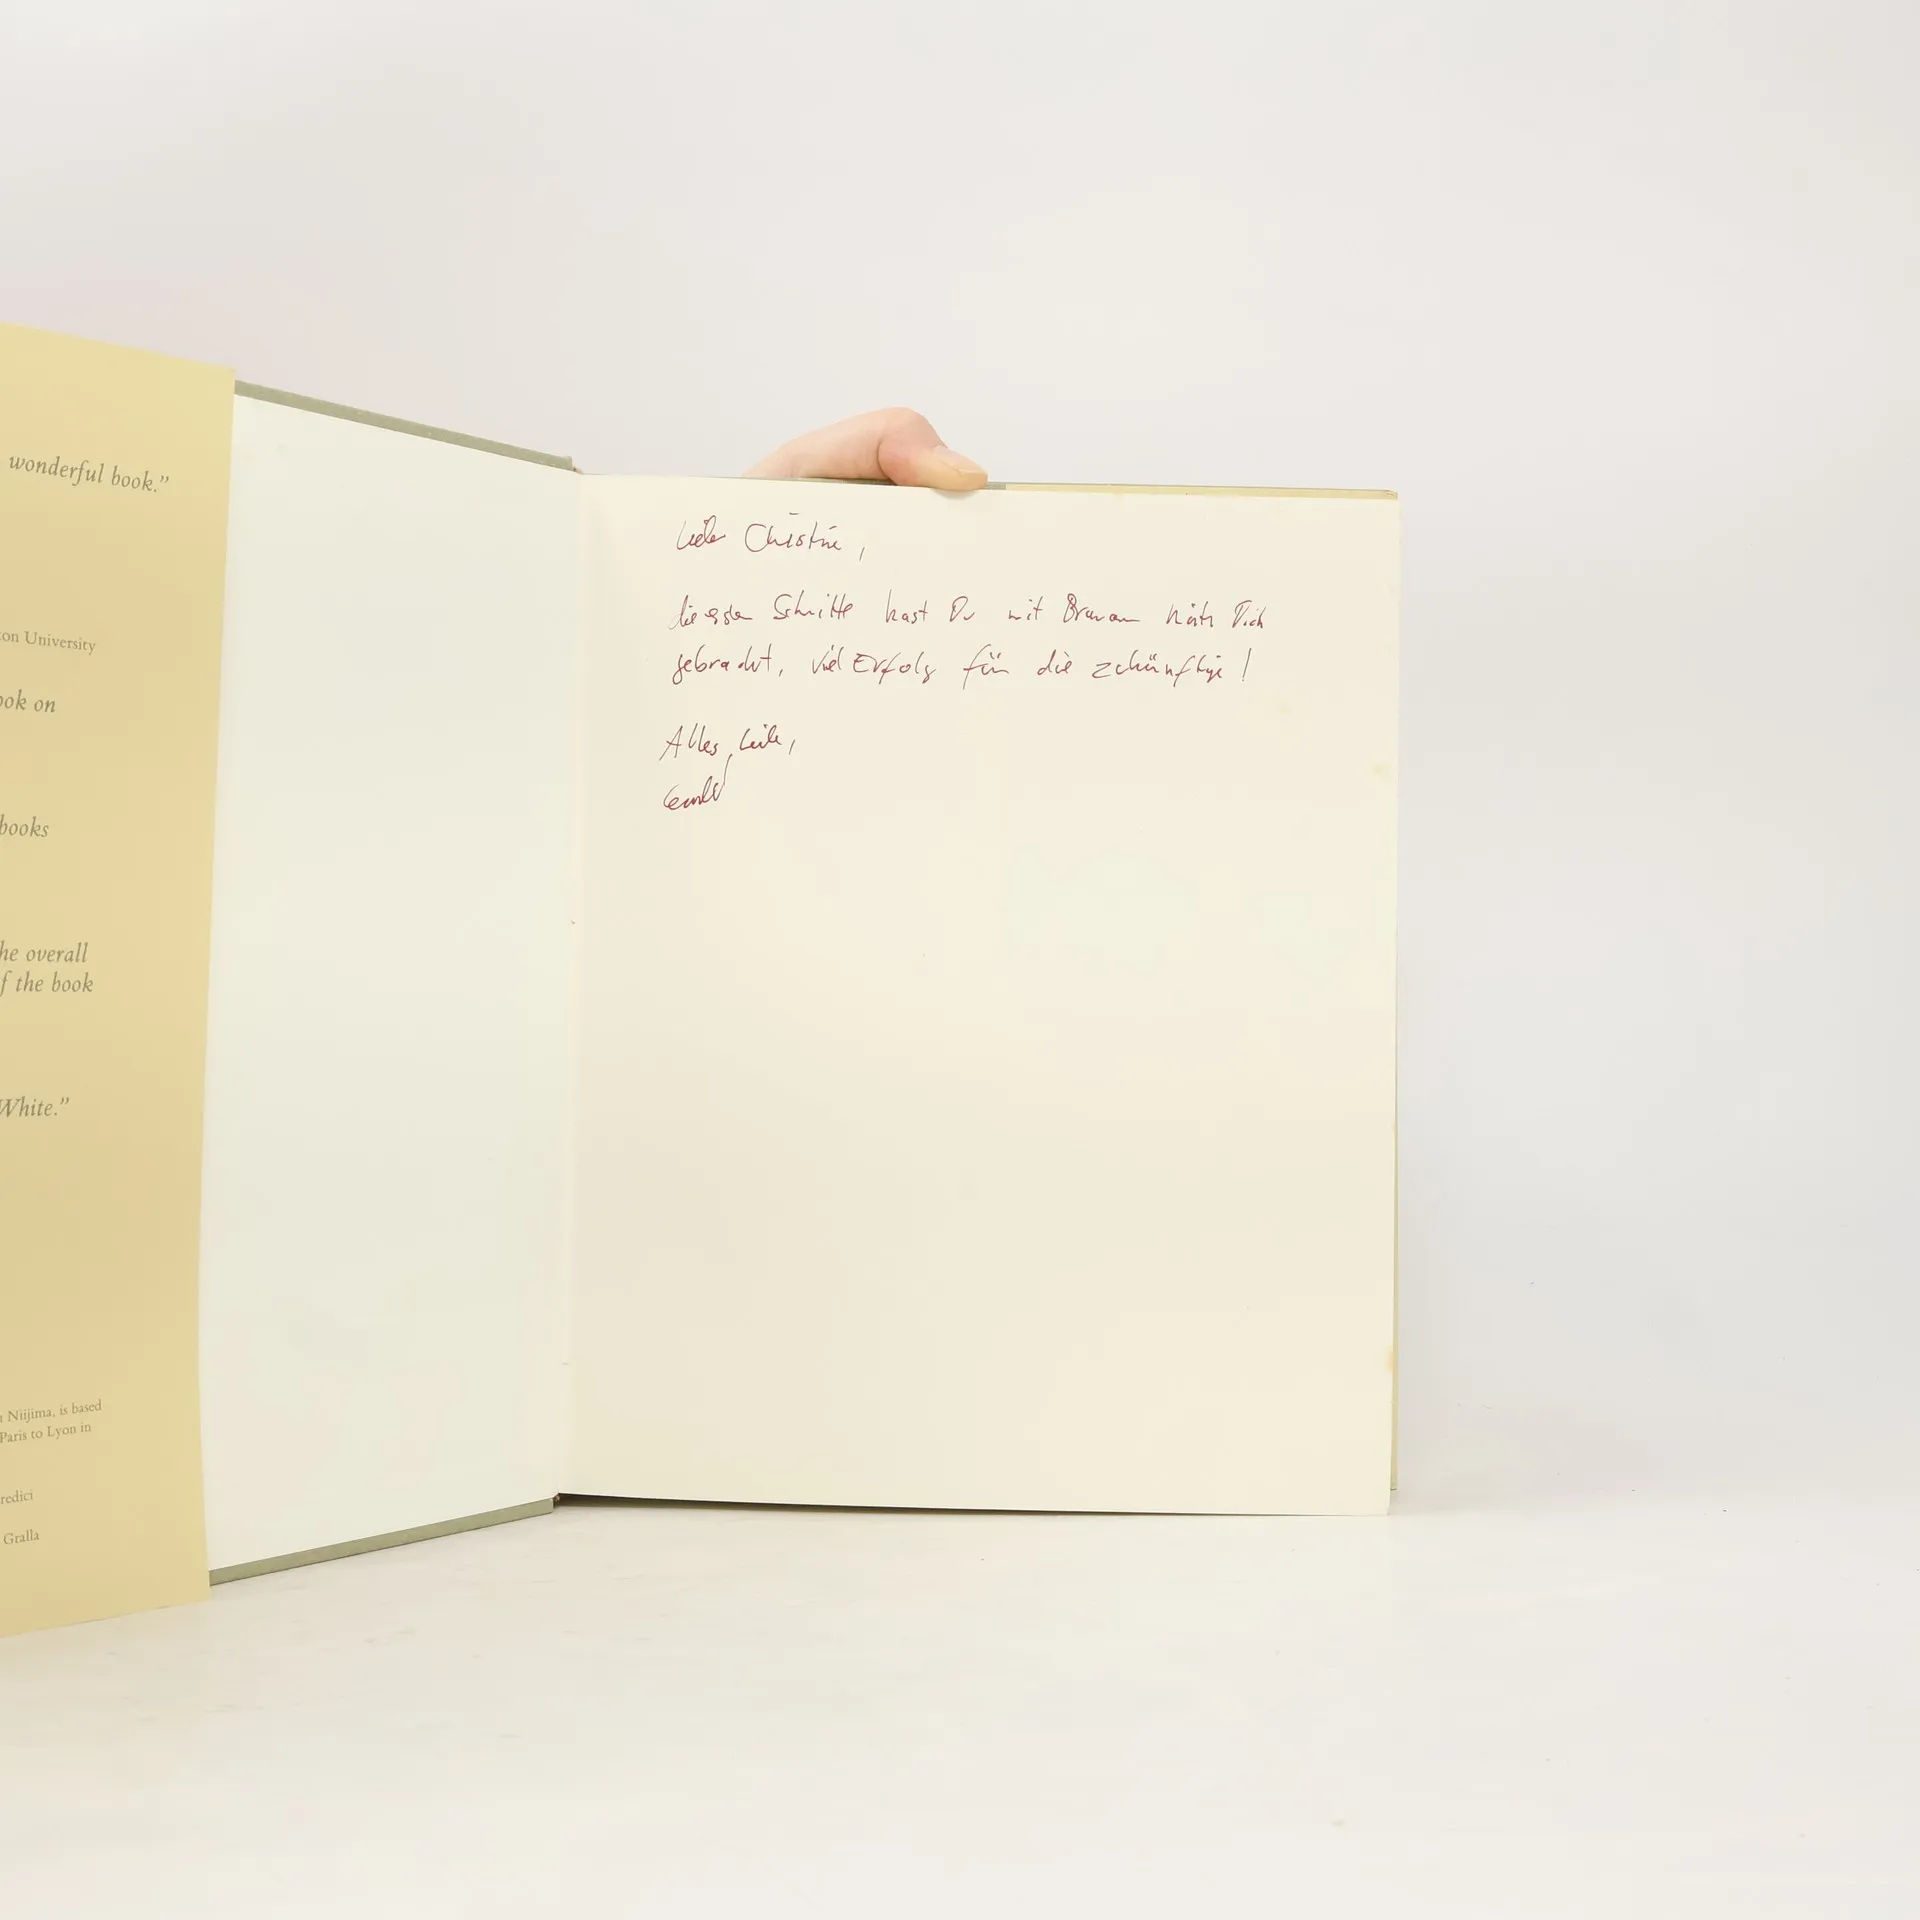 wonderful book.”
on University
ook on
books
he overall
f the book
White.”
Niijima, is based
Paris to Lyon in
redici
Gralla
Christine,
die ersten Schritte hast Du mit Bravour hinter Dich
gebracht, viel Erfolg für die zukünftige!
Alles Liebe,